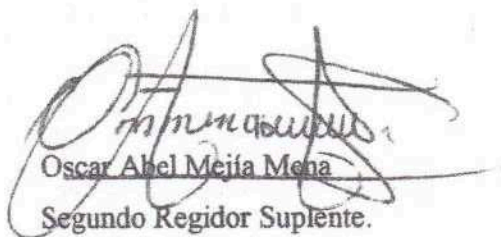 Oscar Abel Mejía Mena
Segundo Regidor Suplente.